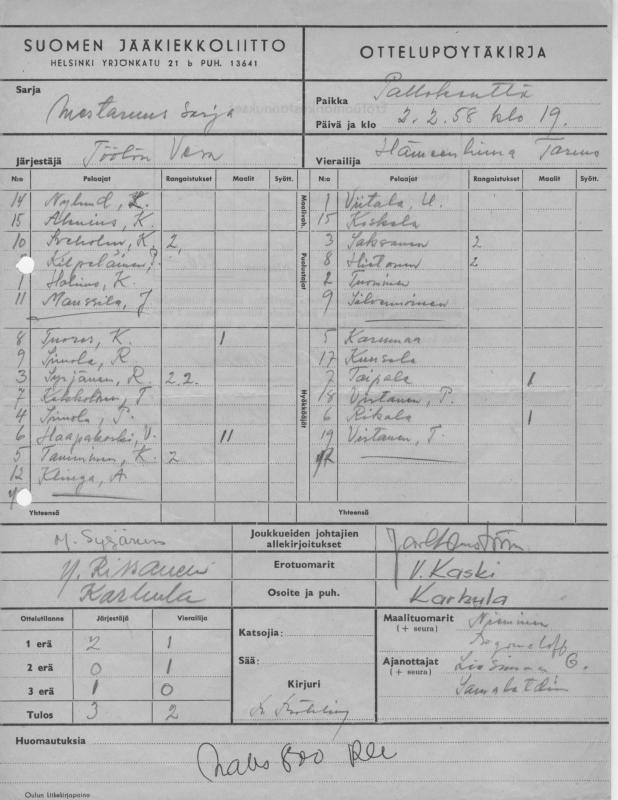 SUOMEN JÄÄKIEKKOLIITTO
HELSINKI YRJÖNKATU 21 b PUH. 13641
OTTELUPÖYTÄKIRJA
Sarja
Mestaruus sarja
Paikka
Päivä ja klo 2.2.58 klo 19.
Järjestäjä Töölön Vesa
Vierailija Hämeenlinna Tarmo
N:o Pelaajat Rangaistukset Maalit Syött. N:o Pelaajat Rangaistukset Maalit Syött.
Maalivah.
Puolustajat
Hyökkääjät
14 Nylund, 1 Viitala, U.
15 K. 15 Koskela
10 K. 2 3 Saksanen 2
Kilpeläinen, P. 8 Hietanen 2
1 K. 2 Tuominen
11 Manssila, J 9 Silvennoinen
8 K. I 5 Karumaa
9 Simola, R 17
3 Syrjänen, R. 2.2. 7 Taipale I
7 T 18 Virtanen, P.
4 Simola, P. 6 Rikala I
6 Haapakoski, V. II 19 Virtanen, T.
5 Tamminen, K. 2
12 Klinga, A
Yhteensä Yhteensä
M. Syrjänen
Joukkueiden johtajien
allekirjoitukset
Y. Rissanen
Erotuomarit
V. Kaski
Karhula
Osoite ja puh.
Karhula
Ottelutilanne Järjestäjä Vierailija
1 erä 2 1
2 erä 0 1
3 erä 1 0
Tulos 3 2
Katsojia:
Sää:
Kirjuri
Maalituomarit Nieminen
(+ seura)
Ajanottajat G.
(+ seura)
Huomautuksia
Oulun Liikekirjapaino